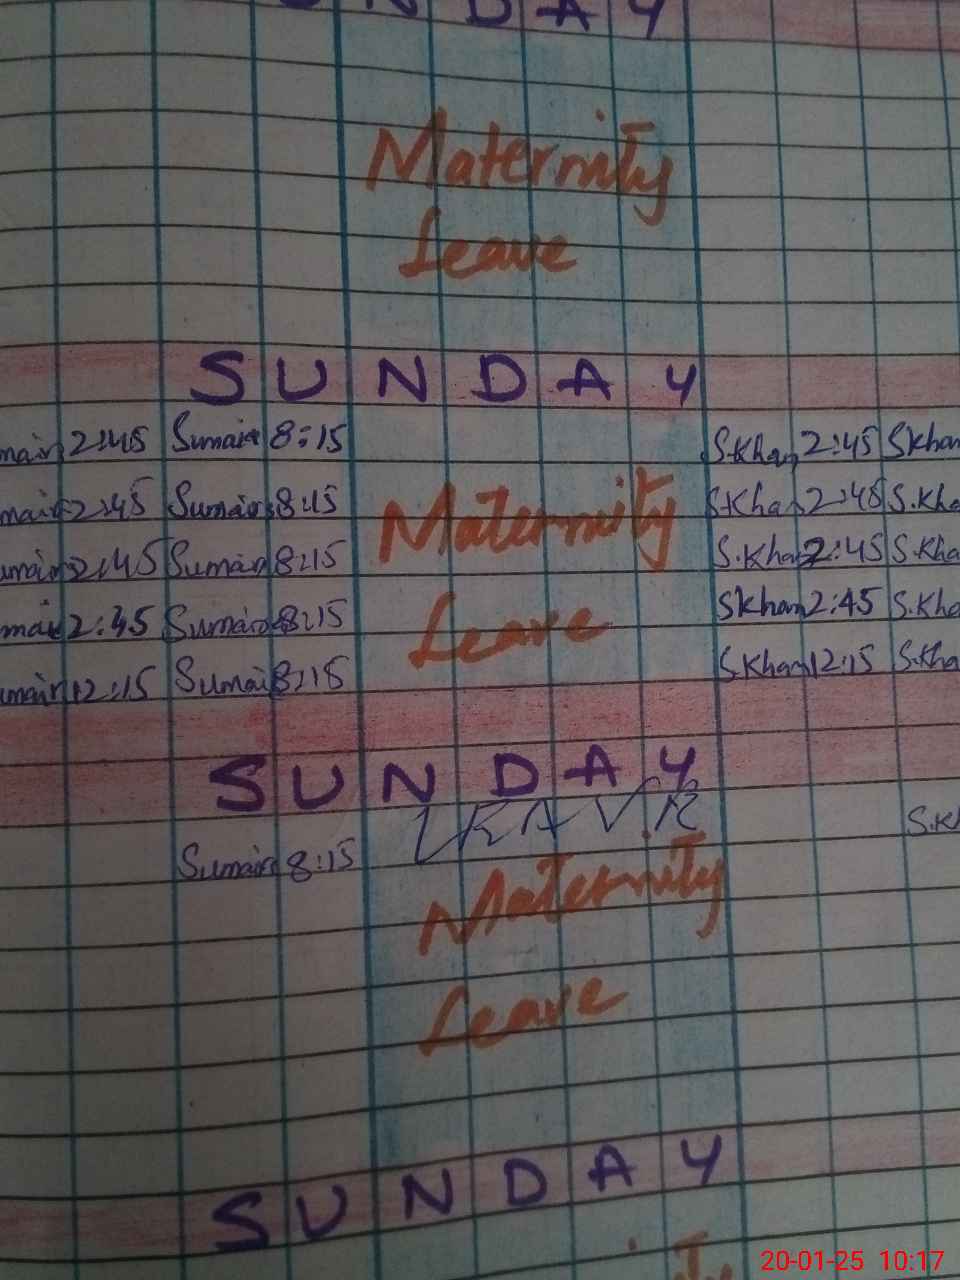 SUNDAY
Maternity
Leave
SUNDAY
2:45 Sumair 8:15 S.Khan 2:45 SKhan
2:45 Sumair 8:15 SKhan 2:45 S.Kha
2:45 Sumair 8:15 S.Khan 2:45 S.Kha
Maternity
2:45 Sumair 8:15 SKhan 2:45 S.Kha
Leave
12:15 Sumair 8:15 S.Khan 12:15 S.Kha
SUNDAY
Sumair 8:15 S.Kh
Maternity
Leave
SUNDAY
20-01-25 10:17